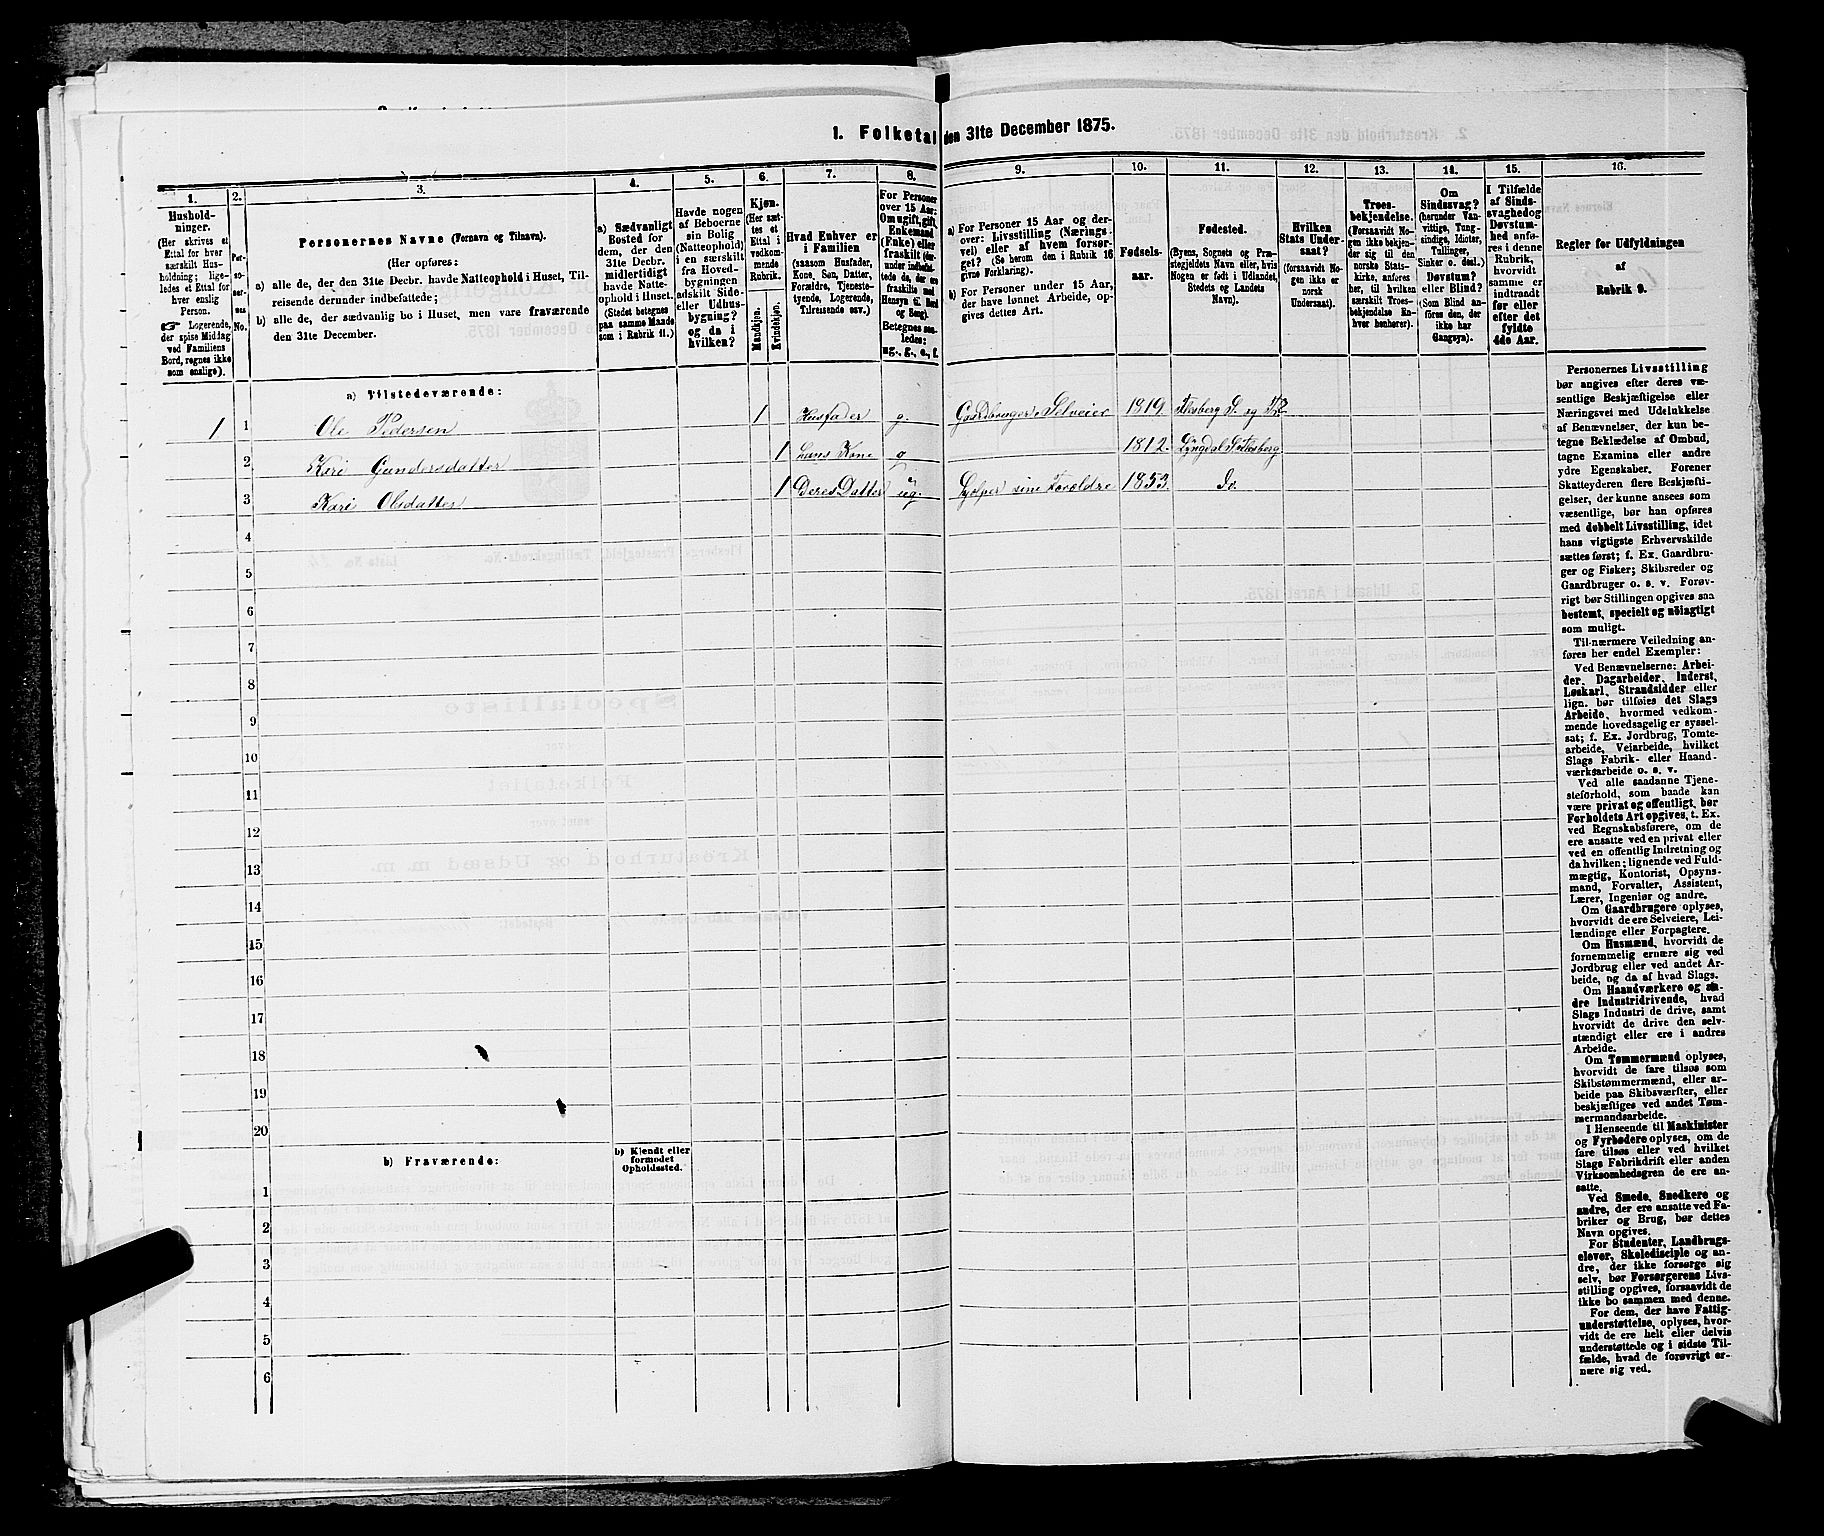 1. Folketal den 31te December 1875.
1.
2.
3.
4.
5.
6.
7.
8.
9.
10.
11.
12.
13.
14.
15.
16.
Hushold-
ninger.
(Her skrives et
Ettal for hver
særskilt Hus-
holdning; lige-
ledes et Ettal for
hver enslig
Person.
☞ Logerende,
der spise Middag
ved Familiens
Bord, regnes ikke
som enslige).
Per-
so-
ner-
nes
No.
Personernes Navne (Fornavn og Tilnavn).
(Her opføres:
a) alle de, der den 31te Decbr. havde Natteophold i Huset, Til-
reisende derunder indbefattede;
b) alle de, der sædvanlig bo i Huset, men vare fraværende
den 31te December.
a) Sædvanligt
Bosted for
dem, der den
31te Decbr.
midlertidigt
havde Natte-
ophold i Huset.
(Stedet betegnes
paa samme Maade
som i Rubrik 11.)
Havde nogen
af Beboerne
sin Bolig
(Natteophold)
i en særskilt
fra Hoved-
bygningen
adskilt Side-
eller Udhus-
bygning?
og da i
hvilken?
Kjøn.
(Her sæt-
tes et
Ettal i
vedkom-
mende
Rubrik.
Mandkjøn.
Kvindekjøn.
Hvad Enhver er
i Familien
(saasom Husfader,
Kone, Søn, Datter,
Forældre, Tjeneste-
tyende, Logerende,
Tilreisende osv.)
For Personer
over 15 Aar:
Om ugift, gift,
Enkemand
(Enke) eller
fraskilt (der-
under indbefat-
tede de, der ere
fraskilte med
Hensyn til Bord
og Seng).
Betegnes saa-
ledes:
ug., g., e., f.
a) For Personer 15 Aar og der-
over: Livsstilling (Nærings-
vei) eller af hvem forsør-
get? (Se herom den i Rubrik 16
givne Forklaring).
b) For Personer under 15 Aar,
der have lønnet Arbeide, op-
gives dettes Art.
Fødsels-
aar.
Fødested.
(Byens, Sognets og Præ-
stegjeldets Navn eller, hvis
Nogen er født i Udlandet,
Stedets og Landets
Navn).
Hvilken
Stats Under-
saat?
(forsaavidt No-
gen ikke er
norsk
Undersaat).
Troes-
bekjendelse.
(Forsaavidt No-
gen ikke bekjen-
der sig til den
norske Stats-
kirke, anføres
her, til hvilken
særskilt Troes-
bekjendelse En-
hver henhører).
Om
Sindssvag?
(herunder Van-
vittige, Tung-
sindige, Idioter,
Tullinger,
Sinker o. desl.)
Døvstum?
eller Blind?
(Som Blind an-
føres den, der
ikke har
Gangsyn).
I Tilfælde
af Sinds-
svaghed og
Døvstum-
hed anfø-
res i denne
Rubrik,
hvorvidt
samme er
indtraadt
før eller
efter det
fyldte
4de Aar.
Regler for Udfyldningen
af
Rubrik 9.
a) Tilstedeværende:
1 1 Ole Pedersen 1 Husfader g. Gaardbruger Selveier 1819. Flesberg S. og
2 Kari Gundersdatter 1 hans Kone g 1812. Lyngdal S. Flesberg
3 Kari Olsdatter 1 Deres Datter ug. Hjelper sine Forældre 1853. do.
4
5
6
7
8
9
10
11
12
13
14
15
16
17
18
19
20
b) Fraværende:
b) Kjendt eller
formodet
Opholdssted.
1
2
3
4
5
6
Personernes Livsstilling
bør angives efter deres væ-
sentlige Beskjæftigelse eller
Næringsvei med Udelukkelse
af Benævnelser, der kun be-
tegne Beklædelse af Ombud,
tagne Examina eller andre
ydre Egenskaber. Forener
Skatteyderen flere Beskjæfti-
gelser, der kunne ansees som
væsentlige, bør han opføres
med dobbelt Livsstilling, idet
hans vigtigste Erhvervskilde
sættes først; f. Ex. Gaardbru-
ger og Fisker; Skibsreder og
Gaardbruger o. s. v. Forøv-
rigt bør Stillingen opgives saa
bestemt, specielt og nøiagtigt
som muligt.
Til nærmere Veiledning an-
føres her endel Exempler:
Ved Benævnelserne: Arbei-
der, Dagarbeider, Inderst,
Løskarl, Strandsidder eller
lign. bør tilføies det Slags
Arbeide, hvormed vedkom-
mende hovedsagelig er syssel-
sat; f. Ex. Jordbrug, Tomte-
arbeide, Veiarbeide, hvilket
Slags Fabrik- eller Haand-
værksarbeide o. s. v.
Ved alle saadanne Tjene-
steforhold, som baade kan
være privat og offentligt, bør
Forholdets Art opgives, t. Ex.
ved Regnskabsførere, om de
ere ansatte ved en privat eller
ved en offentlig Indretning og
da hvilken; lignende ved Fuld-
mægtig, Kontorist, Opsyns-
mand, Forvalter, Assistent,
Lærer, Ingeniør og andre.
Om Gaardbrugere oplyses,
hvorvidt de ere Selveiere, Lei-
lændinge eller Forpagtere.
Om Husmænd, hvorvidt de
fornemmelig ernære sig ved
Jordbrug eller ved andet Ar-
beide, og da af hvad Slags.
Om Haandværkere og an-
dre Industridrivende, hvad
Slags Industri de drive, samt
hvorvidt de drive den selv-
stændigt eller ere i andres
Arbeide.
Om Tømmermænd oplyses,
hvorvidt de fare tilsøs som
Skibstømmermænd, eller ar-
beide paa Skibsværfter, eller
beskjæftiges ved andet Tøm-
mermandsarbeide.
I Henseende til Maskinister
og Fyrbødere oplyses, om de
fare tilsøs eller ved hvilket
Slags Fabrikdrift eller anden
Virksomhedsgren de ere an-
satte.
Ved Smede, Snedkere og
andre, der ere ansatte ved Fa-
briker og Brug, bør dettes
Navn opgives.
For Studenter, Landbrugs-
elever, Skoledisciple og an-
dre, der ikke forsørge sig
selv, bør Forsørgerens Livs-
stilling opgives, forsaavidt de
ikke bo sammen med denne.
For dem, der have Fattig-
understøttelse, oplyses, hvor-
vidt de ere helt eller delvis
understøttede og i sidste Til-
fælde, hvad de forøvrigt er-
nære sig ved.